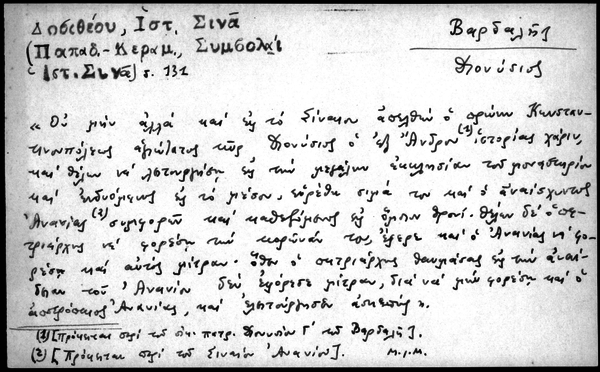 Δοσιθέου, Ἱστ. Σινᾶ
(Παπαδ.-Κεραμ., Συμβολαὶ
Ἱστ. Σινᾶ) σ. 131
Βαρδαλῆς
Διονύσιος
« Οὐ μὴν ἀλλὰ καὶ εἰς τὸ Σίναιον ἀπελθὼν ὁ πρώην Κωνσταν-
τινουπόλεως ἁγιώτατος κὺρ Διονύσιος ὁ ἐξ Ἄνδρου (1) ἱστορίας χάριν,
καὶ θέλων νὰ λειτουργήσῃ εἰς τὴν μεγάλην ἐκκλησίαν τοῦ μοναστηρίου
καὶ ἐνδυόμενος εἰς τὸ μέσον, εὑρέθη σιμά του καὶ ὁ ἀναίσχυντος
Ἀνανίας (2) συμφορῶν καὶ καθεζόμενος εἰς θρονί. Θέλων δὲ ὁ πα-
τριάρχης νὰ φορέσῃ τὴν κορώναν του, ἔφερε καὶ ὁ Ἀνανίας νὰ φο-
ρέσῃ καὶ αὐτὸς μίτραν· ὅθεν ὁ πατριάρχης θαυμάσας εἰς τὴν ἀναί-
δειαν τοῦ Ἀνανίου δὲν ἐφόρεσε μίτραν, διὰ νὰ μὴν φορέσῃ καὶ ὁ
Ἀνανίας, καὶ ἐλειτούργησεν ἀσκεπής ».
(1) [Πρόκειται περὶ τοῦ οἰκ. πατρ. Διονυσίου Γ´ τοῦ Βαρδαλῆ].
(2) [Πρόκειται περὶ τοῦ Σιναίου Ἀνανίου]. Μ.Ι.Μ.